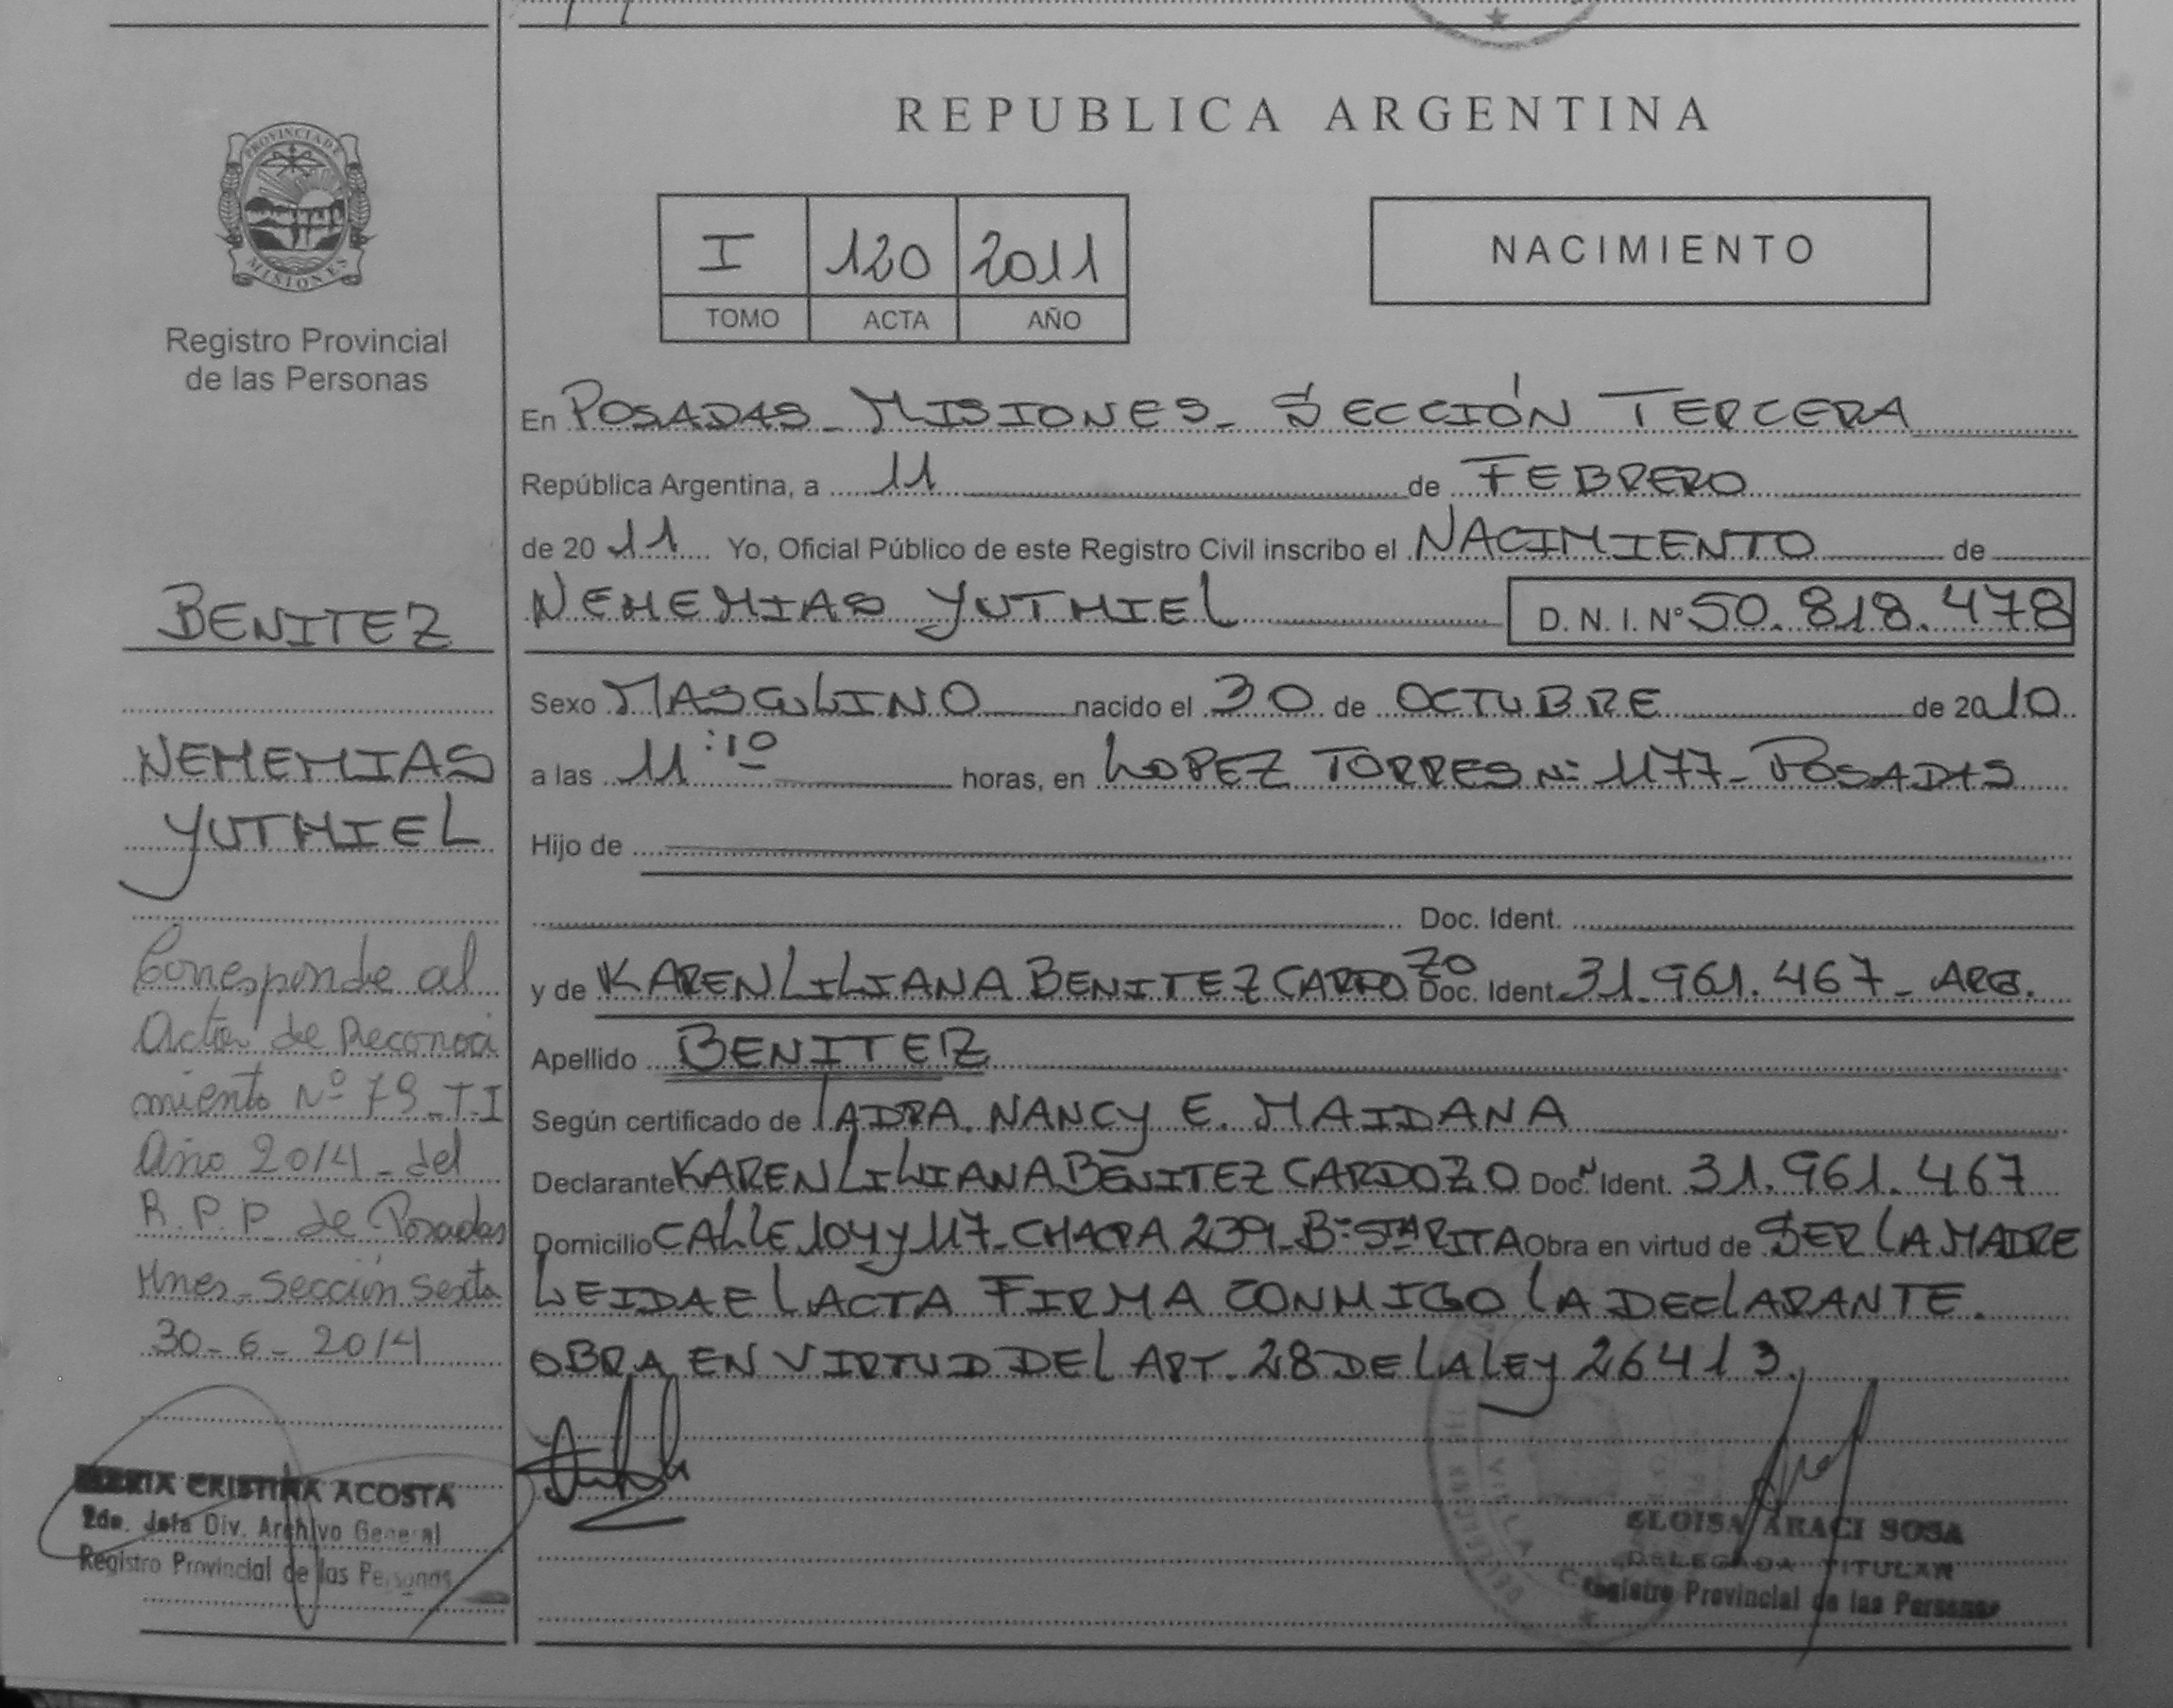 PROVINCIA DE
MISIONES
Registro Provincial
de las Personas
BENITEZ
NEHEMIAS
YUTHIEL
Corresponde al
Acta de Reconoci
miento Nº 79 - T. I
Año 2014 - del
R. P. P. de Posadas
Mnes - Sección Sexta
30 - 6 - 2014
MARIA CRISTINA ACOSTA
2da. Jefa Div. Archivo General
Registro Provincial de las Personas
REPUBLICA ARGENTINA
I 120 2011
TOMO ACTA AÑO
NACIMIENTO
En POSADAS - MISIONES - SECCIÓN TERCERA
República Argentina, a 11 de FEBRERO
de 20 11 Yo, Oficial Público de este Registro Civil inscribo el NACIMIENTO de
NEHEMIAS YUTHIEL D. N. I. Nº 50.818.478
Sexo MASCULINO nacido el 30 de OCTUBRE de 2010
a las 11:10 horas, en LOPEZ TORRES Nº 1177 - POSADAS
Hijo de
Doc. Ident.
y de KAREN LILIANA BENITEZ CARDOZO Doc. Ident. 31.961.467 - ARG.
Apellido BENITEZ
Según certificado de LA DRA. NANCY E. MAIDANA
Declarante KAREN LILIANA BENITEZ CARDOZO Doc. Ident. 31.961.467
Domicilio CALLE 104 y 117 - CHACRA 239 - Bº STA RITA Obra en virtud de SER LA MADRE
LEIDA EL ACTA FIRMA CONMIGO LA DECLARANTE.
OBRA EN VIRTUD DEL ART. 28 DE LA LEY 26413.
ELOISA ARACI SOSA
DELEGADA TITULAR
Registro Provincial de las Personas